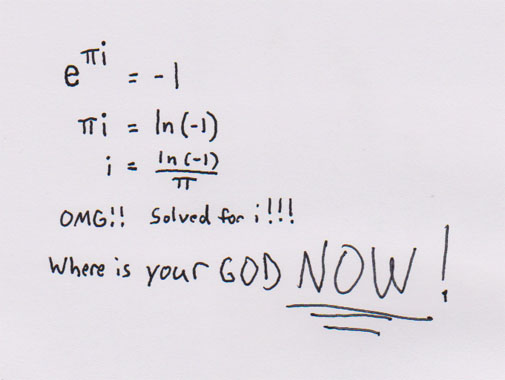 e^πi = -1
πi = ln(-1)
i = ln(-1)/π
OMG!! Solved for i!!!
Where is your GOD NOW!